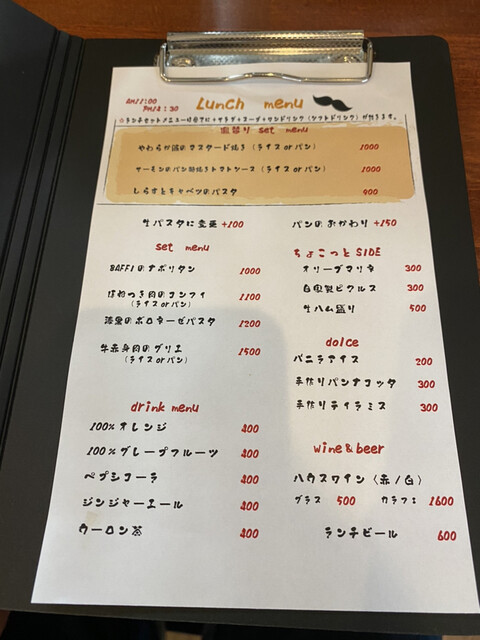 AM11:00
PM14:30
Lunch menu
☆ランチセットメニューは全てに+サラダ+スープ+ワンドリンク(ソフトドリンク)が付きます。
週替り set menu
やわらか豚のマスタード焼き(ライスorパン) 1000
サーモンのパン粉焼きトマトソース(ライスorパン) 1000
しらすとキャベツのパスタ 900
生パスタに変更 +100
パンのおかわり +150
set menu
BAFFIのナポリタン 1000
ほねつき肉のコンフィ 1100
(ライスorパン)
漆黒のボロネーゼパスタ 1200
牛赤身肉のグリエ 1500
(ライスorパン)
ちょこっとSIDE
オリーブマリネ 300
自家製ピクルス 300
生ハム盛り 500
dolce
バニラアイス 200
手作りパンナコッタ 300
手作りティラミス 300
drink menu
100%オレンジ 400
100%グレープフルーツ 400
ペプシコーラ 400
ジンジャーエール 400
ウーロン茶 400
wine&beer
ハウスワイン(赤/白)
グラス 500 カラフェ: 1600
ランチビール 600